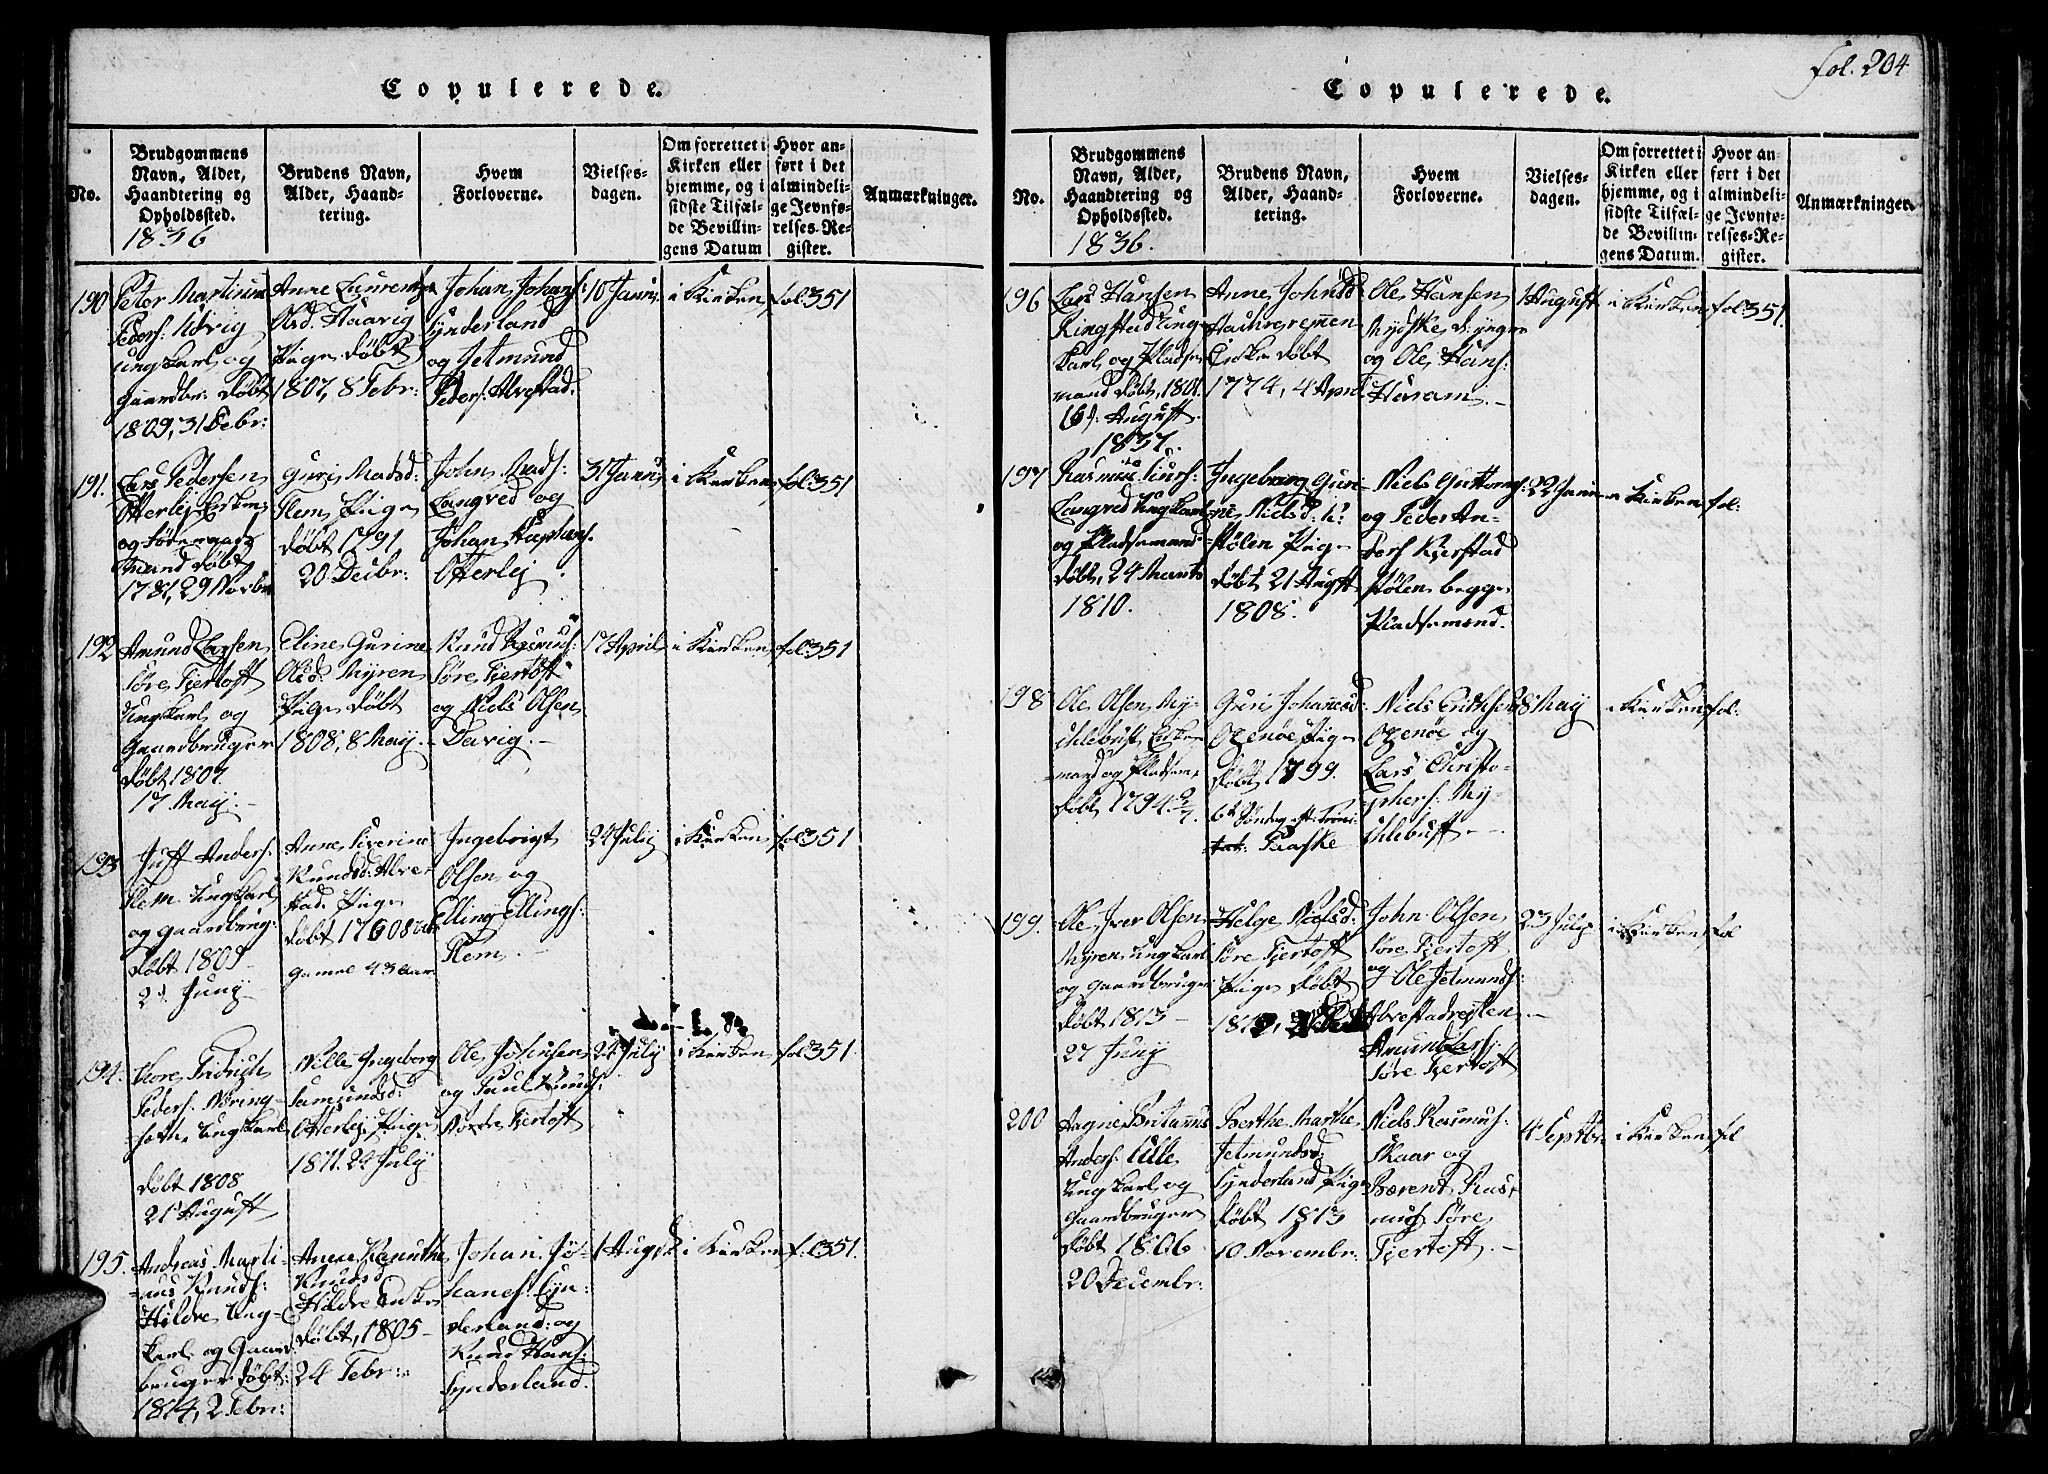 fol. 204
Copulerede.
No.
Brudgommens
Navn, Alder,
Haandtering og
Opholdssted.
Brudens Navn,
Alder, Haand-
tering.
Hvem
Forloverne.
Vielses-
dagen.
Om forrettet i
Kirken eller
hjemme, og i
sidste Tilfæl-
de Bevillin-
gens Datum
Hvor an-
ført i det
almindeli-
ge Jevnfø-
relses-Re-
gister.
Anmærkninger.
1836
190
Peter Martinus
Peders: Ulvig
ungkarl og
Gaardbr: Døbt
1809, 31 Debr:
Anne Laurentza
Olsd. Haavig
Pige Døbt
1807, 8 Febr:
Johan Johans:
Synderland
og Jetmund
Peders: Alvestad.
10 Janu
i Kirken
fol 351
191.
Lars Pedersen
Otterlej Enkem
og
mand Døbt
1781, 29 Novbr
Guri Madsd:
Flem Pige
Døbt 1791
20 Decbr:
John Mads:
Langved og
Johan
Otterlej
31 Janu
i Kirken
fol 351
192
Amund Larsen
Søre Fjertoft
Ungkarl og
Gaardbruger
Døbt 1807.
17 May. -
Eline Gurine
Olsd. Myren
Pige Døbt
1808, 8 May. -
Knud Rasmus:
Søre Fjertoft
og Niels Olsen
Davig. -
17 April
i Kirken
fol 351
193
Juff Anders:
Flem Ungkarl
og Gaardbrug:
Døbt 1809
Juny
Anne Siverine
Knudsd: Alve-
stad Pige
Døbt
gamel 43 Aar
Ingebrigt
Olsen og
Elling Ellings:
Flem. -
24 July
i Kirken
fol 351
194.
Tore Fridrich
Peders:
Ungkarl
Døbt 1808
21 August
Nille Ingeborg
Samundsd:
Otterlej Pige
1811. 24 July
Ole Johnsen
og Paul Knuds:
Nordre Fjertoft
24 July
i Kirken
fol 351.
195.
Andreas Marti-
nus Knuds:
Hildre Ung-
karl og Gaard
bruger Døbt:
1814, 2 Febr:
Anne
Knudsd
Hildre Enke
Døbt, 1805 -
24 Febr:
Johan Jo-
hanes: Syn-
derland: og
Knud Hans:
Synderland.
1 August
i Kirken
fol 351.
Copulerede.
No.
Brudgommens
Navn, Alder,
Haandtering og
Opholdssted.
Brudens Navn,
Alder, Haand-
tering.
Hvem
Forloverne.
Vielses-
dagen.
Om forrettet i
Kirken eller
hjemme, og i
sidste Tilfæl-
de Bevillin-
gens Datum.
Hvor an-
ført i det
almindeli-
ge Jevnfø-
relses-Re-
gister.
Anmærkninger.
1836.
196
Lars Hansen
Ringstad Ung-
karl og Pladse
mand Døbt, 1801.
16d. August.
Anne Johnsd
Enke Døbt
1774, 4 April
Ole Hansen
Mydske d: yngre
og Ole Hans:
Haram. -
1 August
i Kirken
fol 351.
1837.
197
Rasmus
Langved Ungkarl
og Pladsemand
Døbt, 24 Marts
1810.
Ingeborg Guri-
ne Nielsd:
Stølen Pige
Døbt 21 Augst
1808.
Niels Guttorms:
og Peder An-
ders Kjerstad
Stølen begge
Pladsemænd.
22 Janu
i Kirken
fol:
198
Ole Olsen My-
klebust Enke-
mand og Pladsem.
Døbt 1794
Guri Johannesd:
Oxenøe Pige
Døbt 1799.
6te Søndag eft: Trini-
tat: Paaske
Niels Erichsen
Oxenøe og
Lars Christo-
phers: My-
klebust -
8 May
i Kirken
fol:
199.
Ole Iver Olsen
Myren Ungkarl
og Gaardbruger
Døbt 1813 -
27 Juny
Helge Nielsd:
Søre Fjertoft
Pige Døbt
John Olsen
Søre Fjertoft
og Ole Jetmunds:
Alvestadrejten -
Amund Lars:
Søre Fjertoft
23 July
i Kirken
fol
200
Aagne
Anders: Ulle
Ungkarl og
Gaardbruger
Døbt 1806
20 Decembr:
Berthe Marthe
Jetmundsd:
Synderland Pige
Døbt 1813
10 Novembr:
Niels Rasmus:
Skaar og
Bærent Ras-
mus: Søre
Fjertoft. -
4 Septbr
i Kirken
fol